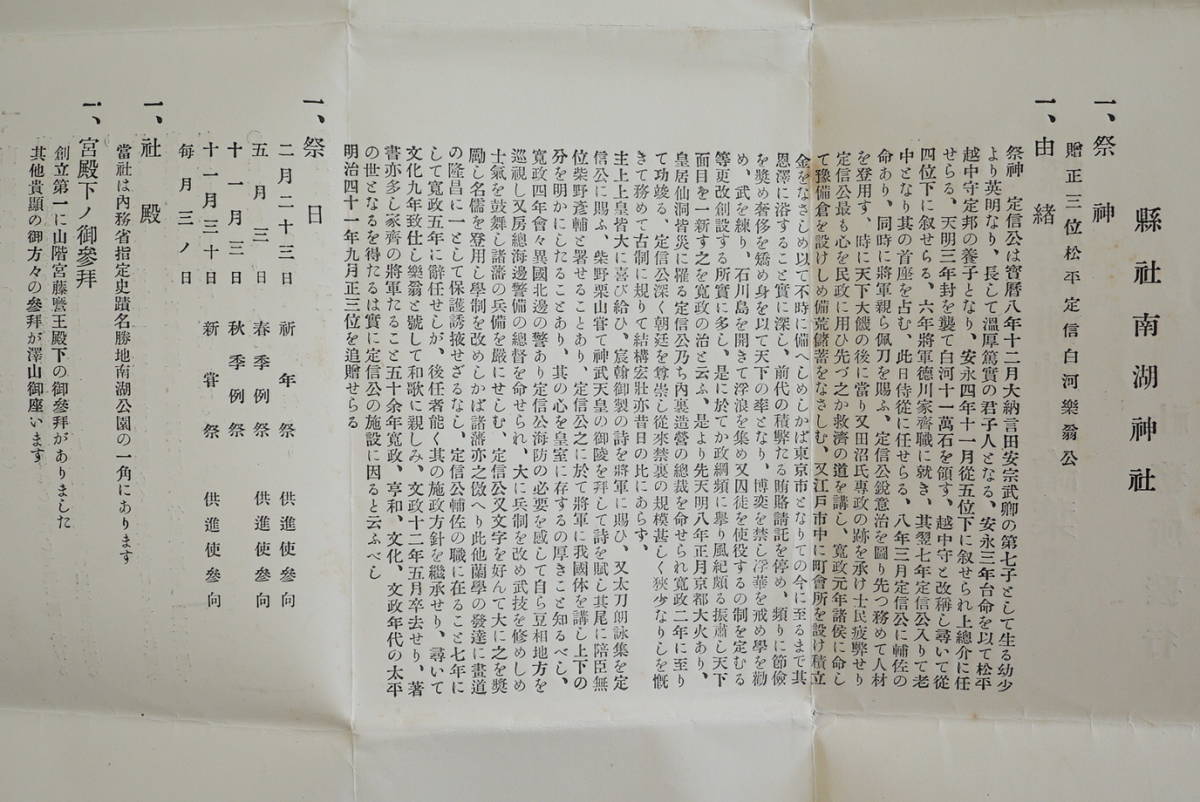 縣社南湖神社
一、祭神
贈正三位松平定信白河樂翁公
一、由緒
祭神 定信公は寳曆八年十二月大納言田安宗武卿の第七子として生る幼少
より英明なり、長して溫厚篤實の君子人となる、安永三年台命を以て松平
越中守定邦の養子となり、安永四年十一月從五位下に叙せられ上總介に任
せらる、天明三年封を襲て白河十一萬石を領す、越中守と改稱し尋いて從
四位下に叙せらる、六年將軍德川家齊職に就き、其翌七年定信公入りて老
中となり其の首座を占む、此日侍從に任せらる、八年三月定信公に輔佐の
命あり、同時に將軍親ら佩刀を賜ふ、定信公銳意治を圖り先つ務めて人材
を登用す、時に天下大饑の後に當り又田沼氏專政の跡を承け士民疲弊せり
定信公最も心を民政に用ひ先づ之か救濟の道を講し、寬政元年諸侯に命し
て豫備倉を設けしめ備荒儲蓄をなさしむ、又江戶市中に町會所を設け積立
金をなさしめ以て不時に備へしめしかば東京市となりての今に至るまで其
恩澤に浴すること實に深し、前代の積弊たる賄賂請託を停め、頻りに節儉
を奬め奢侈を矯め身を以て天下の率となり、博奕を禁し浮華を戒め學を勸
め、武を練り、石川島を開きて浮浪を集め又囚徒を使役するの制を定むる
等更改創設する所實に多し、是に於てか政綱頻に擧り風紀頗る振肅し天下
面目を一新す之を寬政の治と云ふ、是より先天明八年正月京都大火あり、
皇居仙洞皆災に罹る定信公乃ち內裏造營の總裁を命せられ寬政二年に至り
て功竣る、定信公深く朝廷を尊崇し從來禁裏の規模甚しく狹少なりしを慨
きて務めて古制に規りて結構宏壯亦昔日の比にあらず、
主上上皇皆大に喜び給ひ、宸翰御製の詩を將軍に賜ひ、又太刀朗詠集を定
信公に賜ふ、柴野栗山甞て神武天皇の御陵を拜して詩を賦し其尾に陪臣無
位柴野彥輔と署せることあり、定信公之に於て將軍に我國体を講し上下の
分を明かにしたることあり、其の心を皇室に存するの厚きこと知るべし、
寬政四年會々異國北邊の警あり定信公海防の必要を感して自ら豆相地方を
巡視し又房總海邊警備の總督を命せられ、大に兵制を改め武技を修めしめ
士氣を鼓舞し諸藩の兵備を嚴にせしむ、定信公又文字を好んて大に之を奬
勵し名儒を登用し學制を改めしかば諸藩亦之に傚へり此他蘭學の發達に畫道
の隆昌に一として保護誘掖せざるなし、定信公輔佐の職に在ること七年に
して寬政五年に辭任せしが、後任者能く其の施政方針を繼承せり、尋いて
文化九年致仕し樂翁と號して和歌に親しみ、文政十二年五月卒去せり、著
書亦多し家齊の將軍たること五十余年寬政、亨和、文化、文政年代の太平
の世となるを得たるは實に定信公の施設に因ると云ふべし
明治四十一年九月正三位を追贈せらる
一、祭日
二月二十三日 祈年祭 供進使參向
五月三日 春季例祭 供進使參向
十一月三日 秋季例祭
十一月三十日 新甞祭 供進使參向
每月三ノ日
一、社殿
當社は內務省指定史蹟名勝地南湖公園の一角にあります
一、宮殿下ノ御參拜
創立第一に山階宮藤麿王殿下の御參拜がありました
其他貴顯の御方々の參拜が澤山御座います